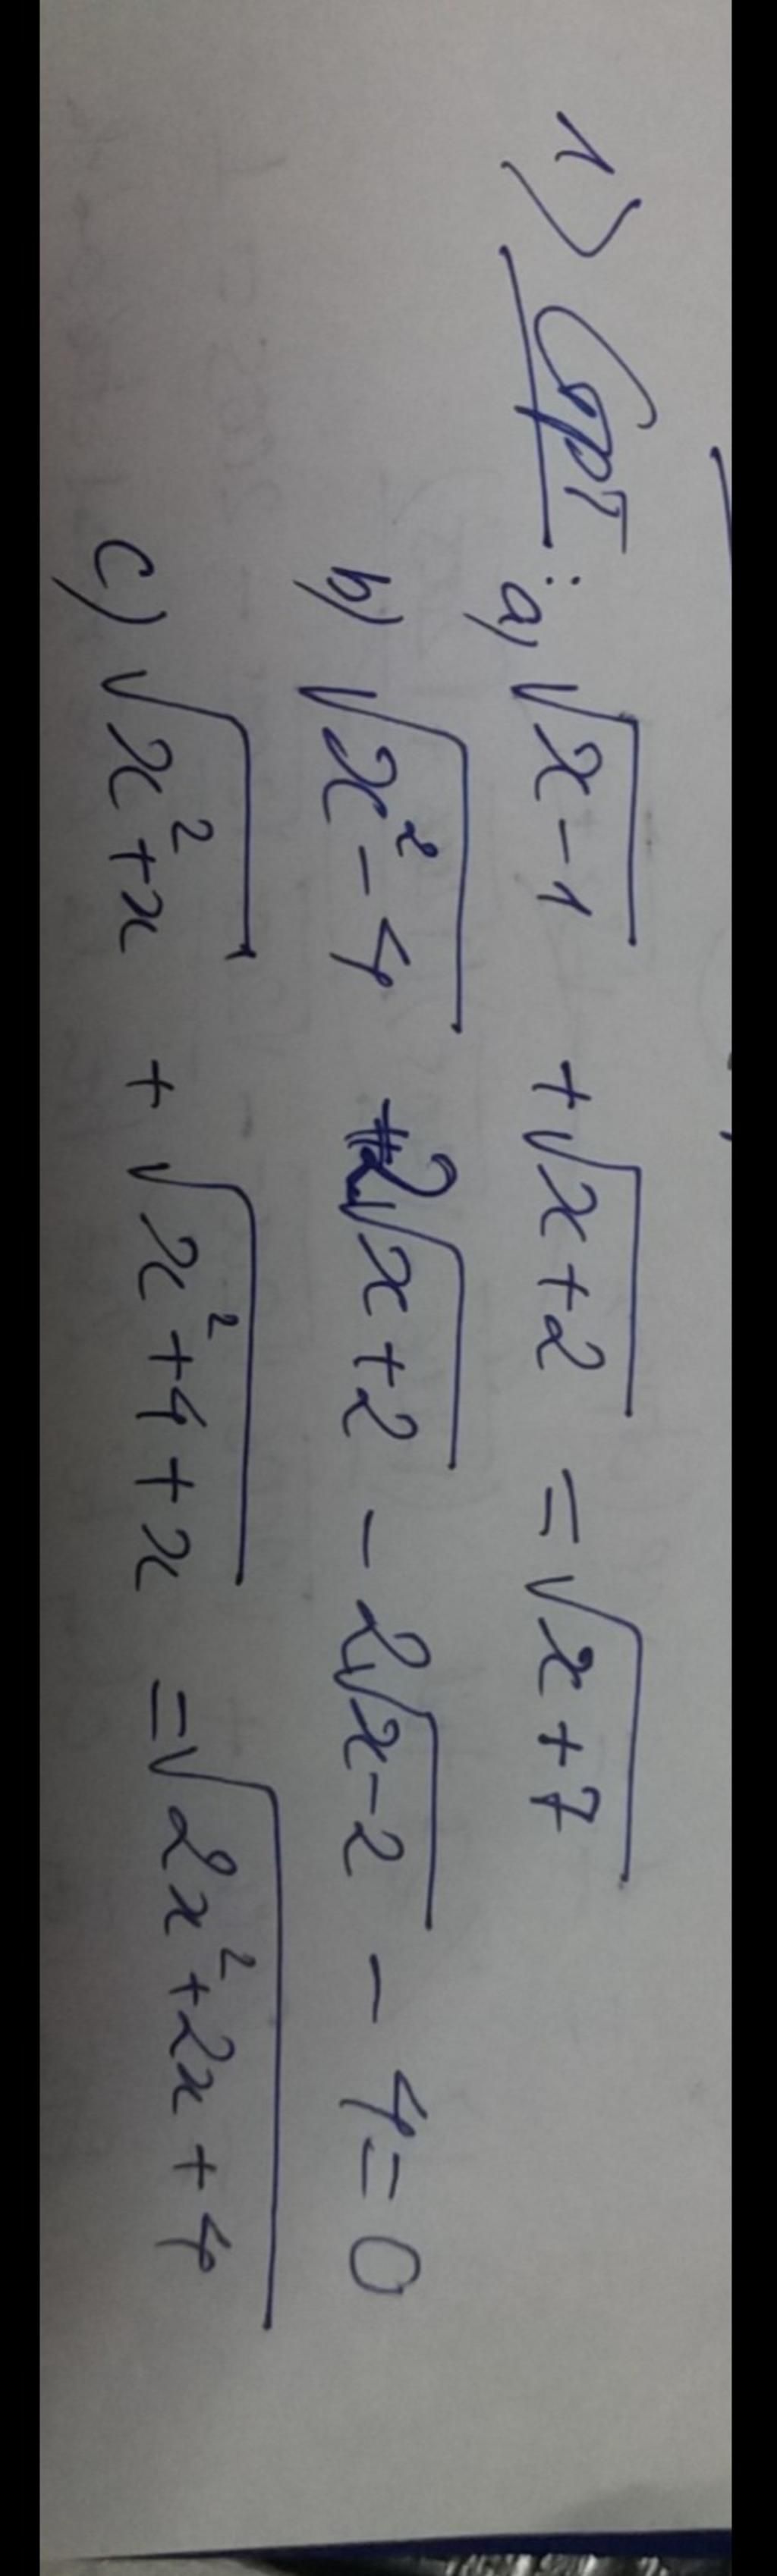 1) GPT: a, √(x-1) + √(x+2) = √(x+7)
b) √(x²-4) + 2√(x+2) - 2√(x-2) - 4 = 0
c) √(x²+x) + √(x²+4+x) = √(2x²+2x+4)